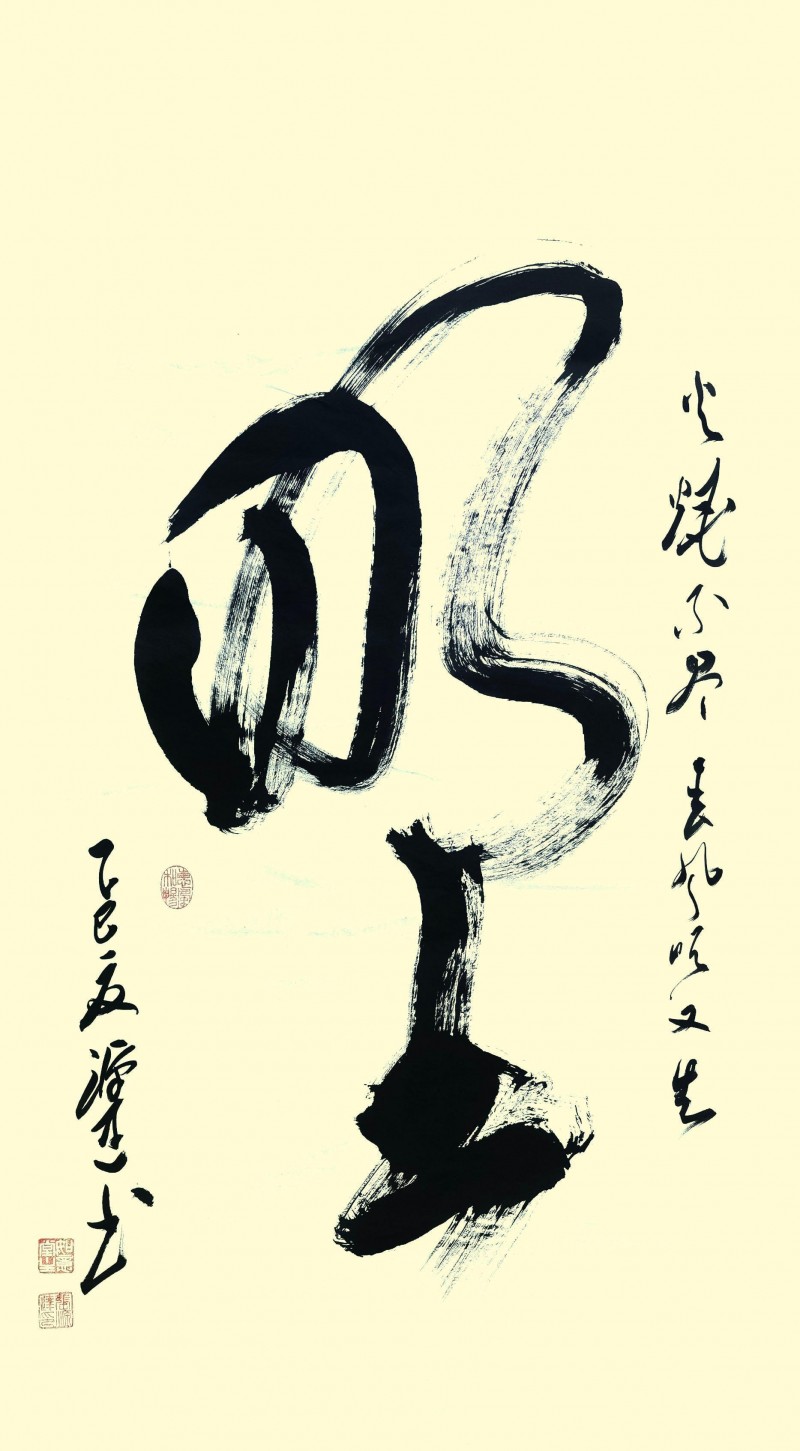 野
火燒不尽春風吹又生
乙巳夏源书